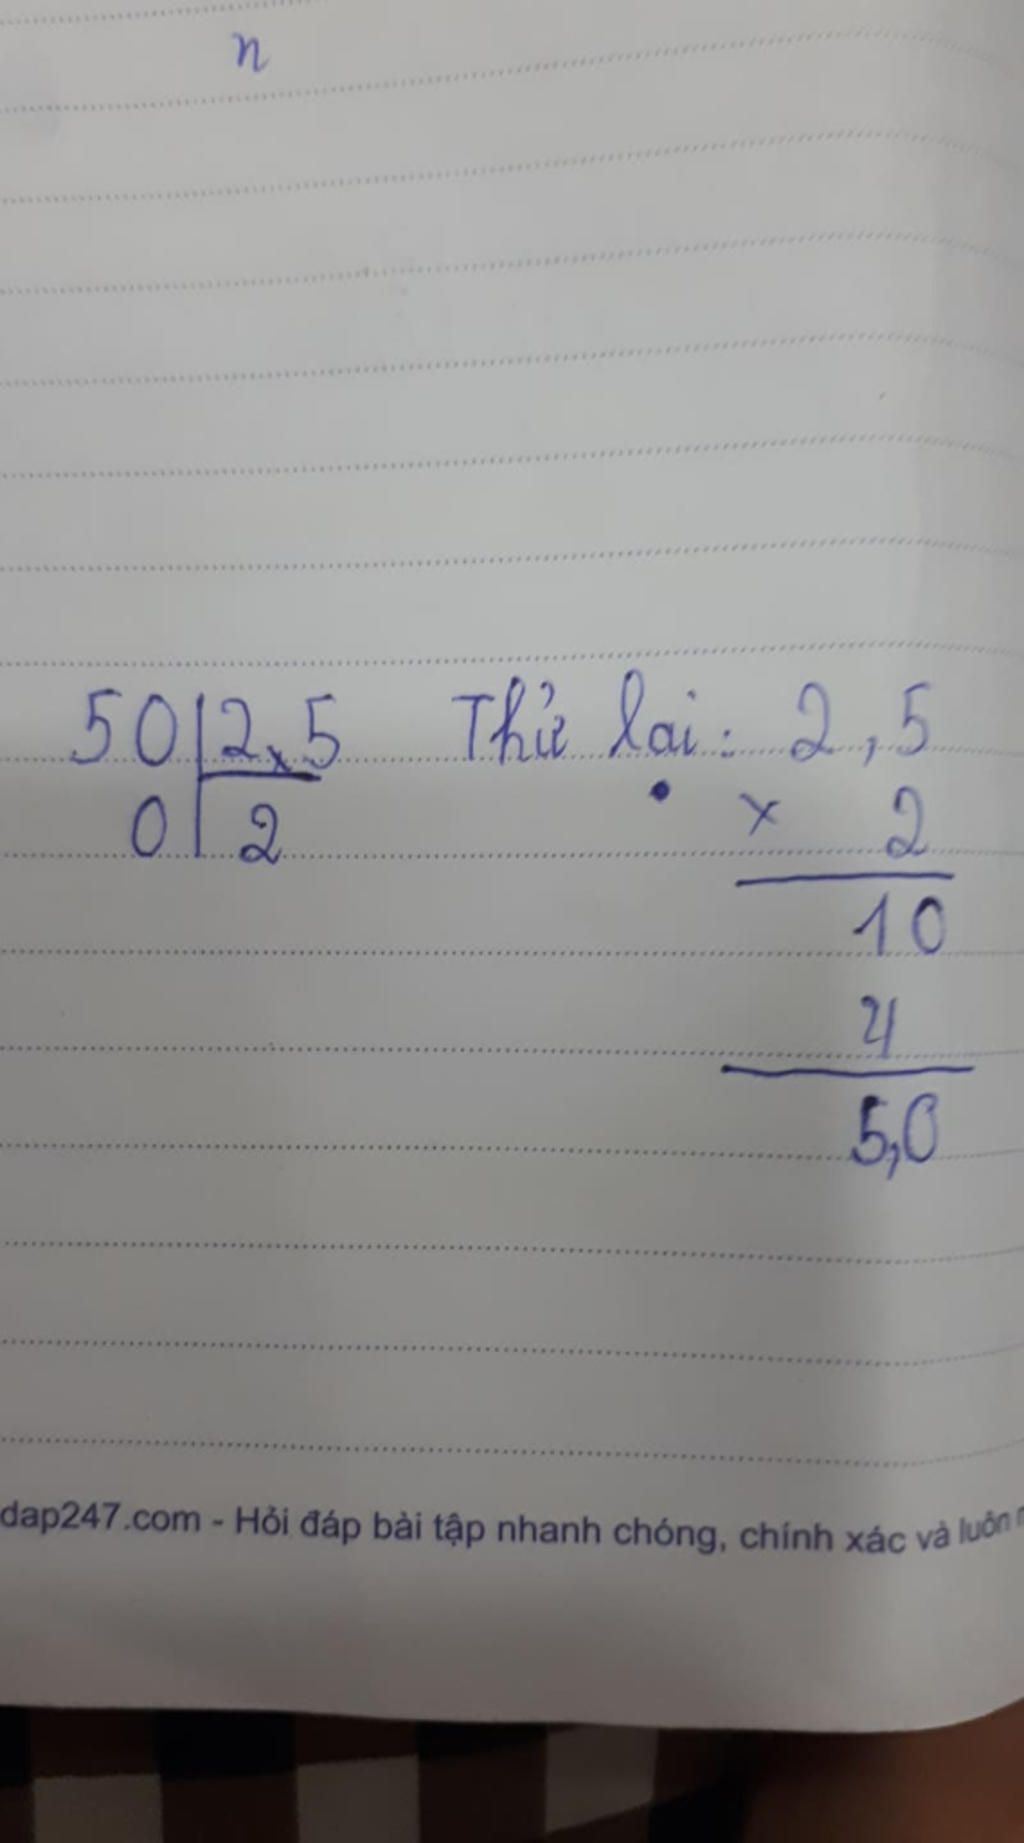 n
50 2,5 Thử lại: 2,5
0 2 x 2
10
4
5,0
dap247.com - Hỏi đáp bài tập nhanh chóng, chính xác và luôn